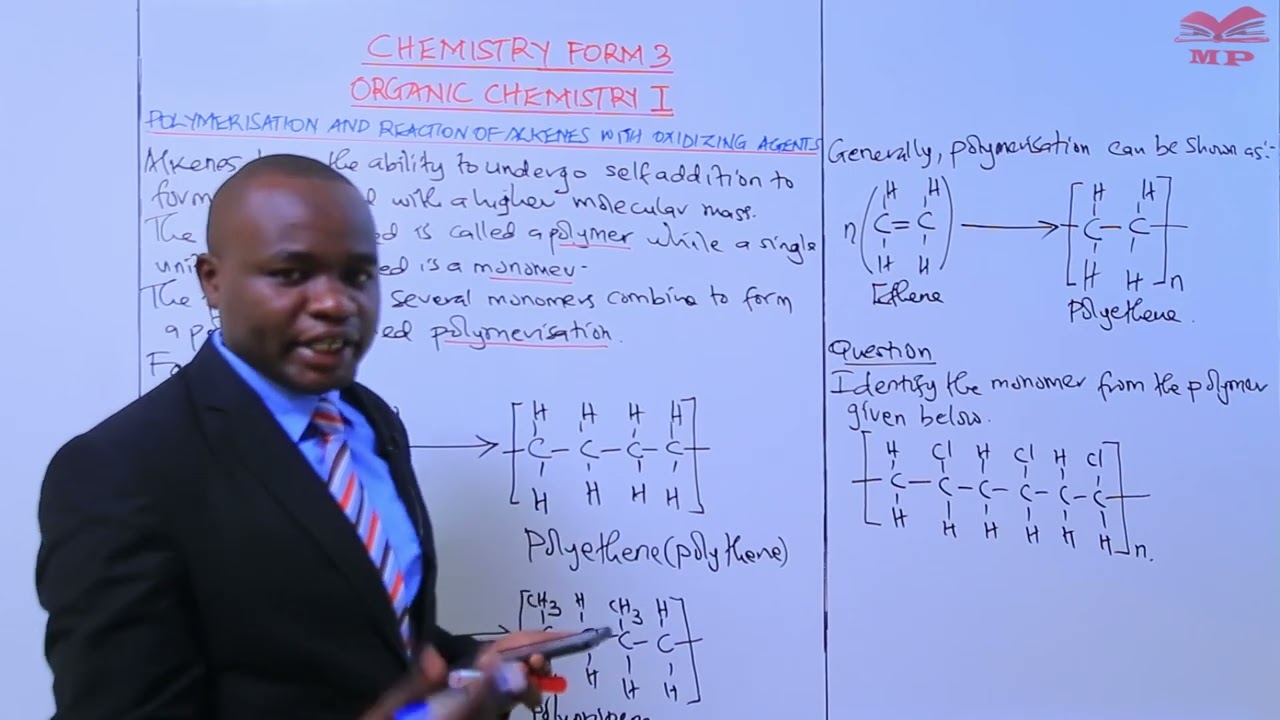 CHEMISTRY FORM 3
ORGANIC CHEMISTRY I
POLYMERISATION AND REACTION OF ALKENES WITH OXIDIZING AGENTS
Alkenes the ability to undergo self addition to
form with a higher molecular mass.
The is called a polymer while a single
is a monomer.
The several monomers combine to form
a polymerisation.
H H H H
C – C – C – C
H H H H
Polyethene (polythene)
CH3 H CH3 H
C – C
H H H
MP
Generally, polymerisation can be shown as:-
H H H H
n C = C C – C
H H H H n
Ethene Polyethene.
Question
Identify the monomer from the polymer
given below.
H Cl H Cl H Cl
C – C – C – C – C – C
H H H H H H n.